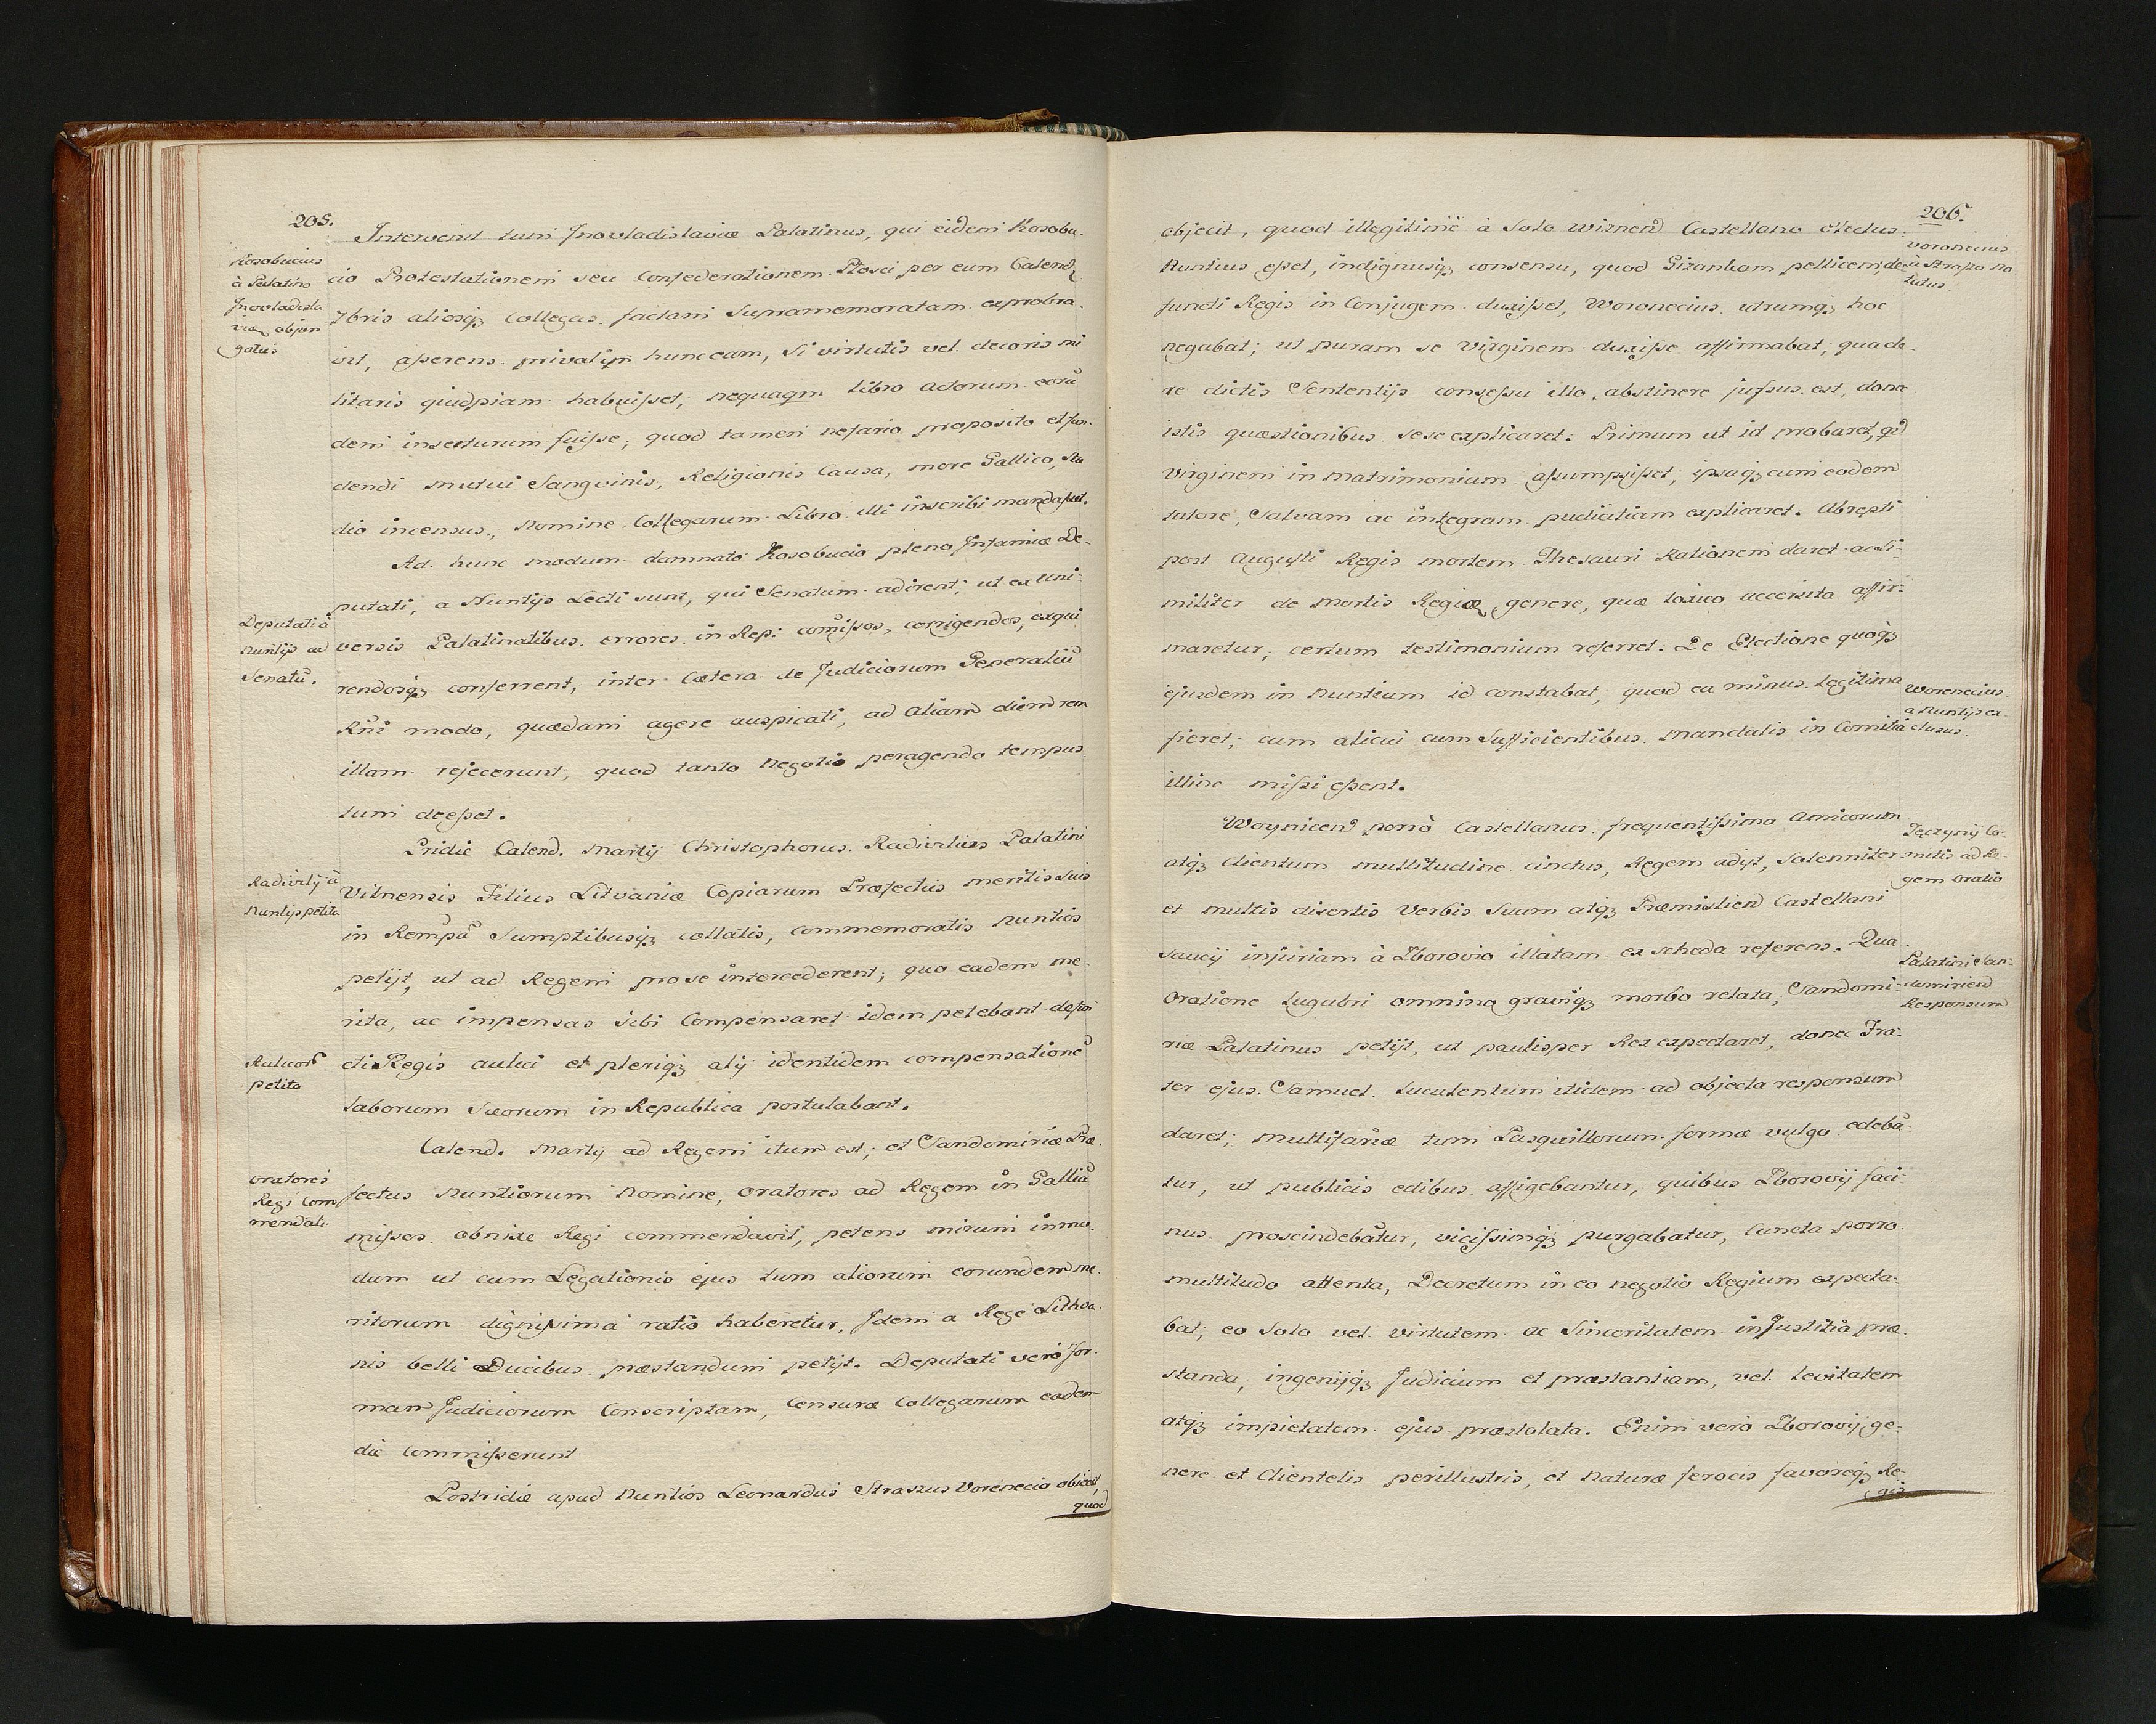 205.
Intervenit tum Inovladislaviæ Palatinus, qui eidem Kosobu-
cio Protestationem seu Confederationem Plosci per eum Calend.
7bris aliosq3 Collegas factam supramemoratam exprobra-
vit, asserens privatim hunc eam, si virtutis vel decoris mi
litaris quidpiam habuisset, nequaqm libro Actorum eorū
dem inserturum fuisse; quod tamen nefario proposito et fun-
dendi mutui Sangvinis, Religionis Causa, more Gallico, stu
dio incensus, nomine Collegarum Libro illi inscribi mandasset.
Kosobucius
à Palatino
Inovladisla
viæ objur
gatus
Ad hunc modum damnato Kosobucio pleno Infamiæ De-
putati, a Nuntijs Lecti sunt, qui Senatum adirent; ut ex Uni-
versis Palatinatibus errores in Rep: comissos, corrigendos, exqui
rendosq3 conferrent, inter Cætera de Judiciorum Generaliū
Rni modo, quædam agere auspicati, ad Aliam diem rem
illam rejecerunt, quod tanto negotio peragendo tempus
tum deesset.
Deputati à
Nuntijs ad
Senatū.
Pridie Calend. Martij Christophorus Radivilius Palatini
Vilnensis Filius Litvaniæ Copiarum Præfectus meritis suis
in Rempã Sumptibusq3 collatis, commemoratis nuntios
petijt, ut ad Regem pro se intercederent; quo eadem me-
rita, ac impensas sibi Compensaret idem petebant defun
cti Regis aulici et pleriq3 alij identidem compensationē
laborum Suorum in Republica postulabant.
Radivilij à
Nuntijs petita
Aulicor
petita
Calend. Martij ad Regem itum est; et Sandomiriæ Præ-
fectus Nuntiorum Nomine, Oratores ad Regem in Galliā
missos obnixe Regi commendavit, petens mirum in mo-
dum ut cum Legationis ejus tum aliorum eorundem me-
ritorum dignissima ratio haberetur, Idem a Rege Lithva-
nis belli Ducibus præstandum petijt. Deputati vero for-
mam Judiciorum Conscriptam, Censuræ Collegarum eadem
die Commisserunt.
Oratores
Regi Com
mendati
Postridie apud Nuntios Leonardus Straszus Voronecio objecit,
quod
206.
objecit, quod illegitimè à Solo Wiznen Castellano electus
Nuntius esset, indignusq3 consensu, quod Gizankam pellicem de
functi Regis in Conjugem duxisset, Woronecius utrumq3 hoc
negabat; ut puram se Virginem duxisse affirmabat, qua de-
re dictis Sententijs consessu illo abstinere jussus est, donec
istis quæstionibus sese explicaret. Primum ut id probaret, qd
Virginem in Matrimonium assumpsisset; ipsaq3 cum eodem
tutore, Salvam ac integram pudicitiam explicaret. Abrepti
post Augusti Regis mortem Thesauri Rationem daret ac Si-
militer de mortis Regiæ genere, quæ toxico accersita affir-
maretur, certum testimonium referret. De Electione quoq3
ejusdem in Nuntium id constabat, quod ea minus legitima
fieret; cum alicui cum Sufficientibus Mandatis in Comitia
illinc missi essent.
Voronecius
à Straszo No
tatus
Woronecius
a Nuntijs ex
clusus.
Woynicen porrò Castellanus frequentissima Amicorum
atq3 Clientum multitudine cinctus, Regem adijt, Solenniter
et multis disertis Verbis Suam atq3 Præmislien Castellani
Saucij injuriam à Zborovio illatam ex scheda referens. Qua
Oratione lugubri omnino graviq3 morbo relata, Sandomi-
riæ Palatinus petijt, ut paulisper Rex expectaret, donec Fra-
ter ejus Samuel luculentum itidem ad objecta responsum
daret; Multifariæ tum Pasquillorum formæ vulgo edebā-
tur, ut publicis edibus affigebantur, quibus Zborovij faci-
nus proscindebatur, vicissimq3 purgabatur, Cuncta porro
multitudo attenta, Decretum in eo negotio Regium expecta-
bat; eo Solo vel virtutem ac Sinceritatem in Justitia præ-
standa; ingenijq3 Judicium et præstantiam, vel levitatem
atq3 impietatem ejus præstolata. Enim verò Zborovij ge-
nere et Clientelis perillustris, et Naturæ ferocis favoreq3 Re-
gis
Tęczynij Co-
mitis ad Re-
gem Oratio
Palatini San-
domirien
Responsum